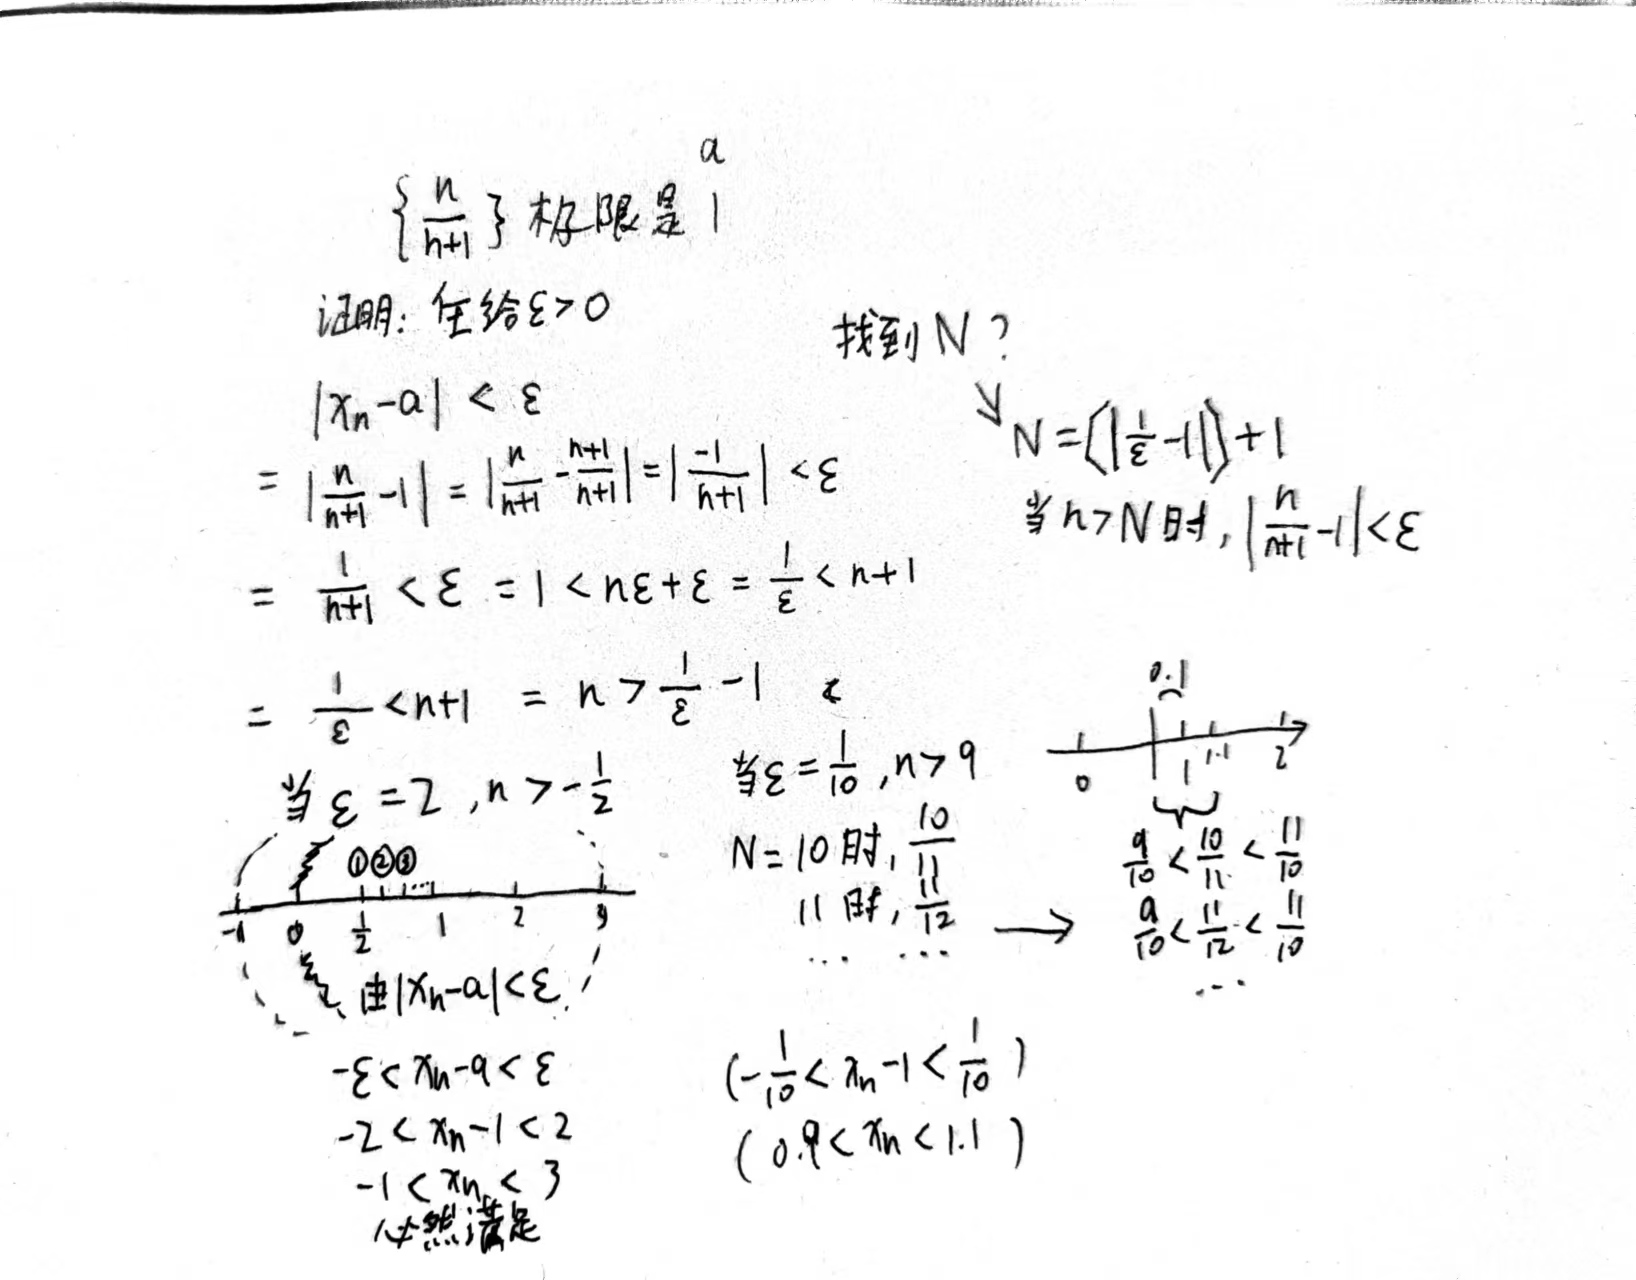 a
{n/(n+1)} 极限是 1
证明: 任给 ε>0
|xₙ-a| < ε
= |n/(n+1) -1| = |n/(n+1) - (n+1)/(n+1)| = |-1/(n+1)| < ε
= 1/(n+1) < ε = 1 < nε+ε = 1/ε < n+1
= 1/ε < n+1 = n > 1/ε -1
找到 N ?
↘ N = [|1/ε -1|] +1
当 n>N 时, |n/(n+1) -1| < ε
当 ε=2, n > -1/2
① ② ③ ...
-1 0 1/2 1 2 3
由 |xₙ-a| < ε
-ε < xₙ-a < ε
-2 < xₙ-1 < 2
-1 < xₙ < 3
必然满足
当 ε = 1/10, n > 9
N = 10 时, 10/11
11 时, 11/12 →
... ...
(-1/10 < xₙ-1 < 1/10)
(0.9 < xₙ < 1.1)
0.1
0 1 1.1 2
9/10 < 10/11 < 11/10
9/10 < 11/12 < 11/10
...